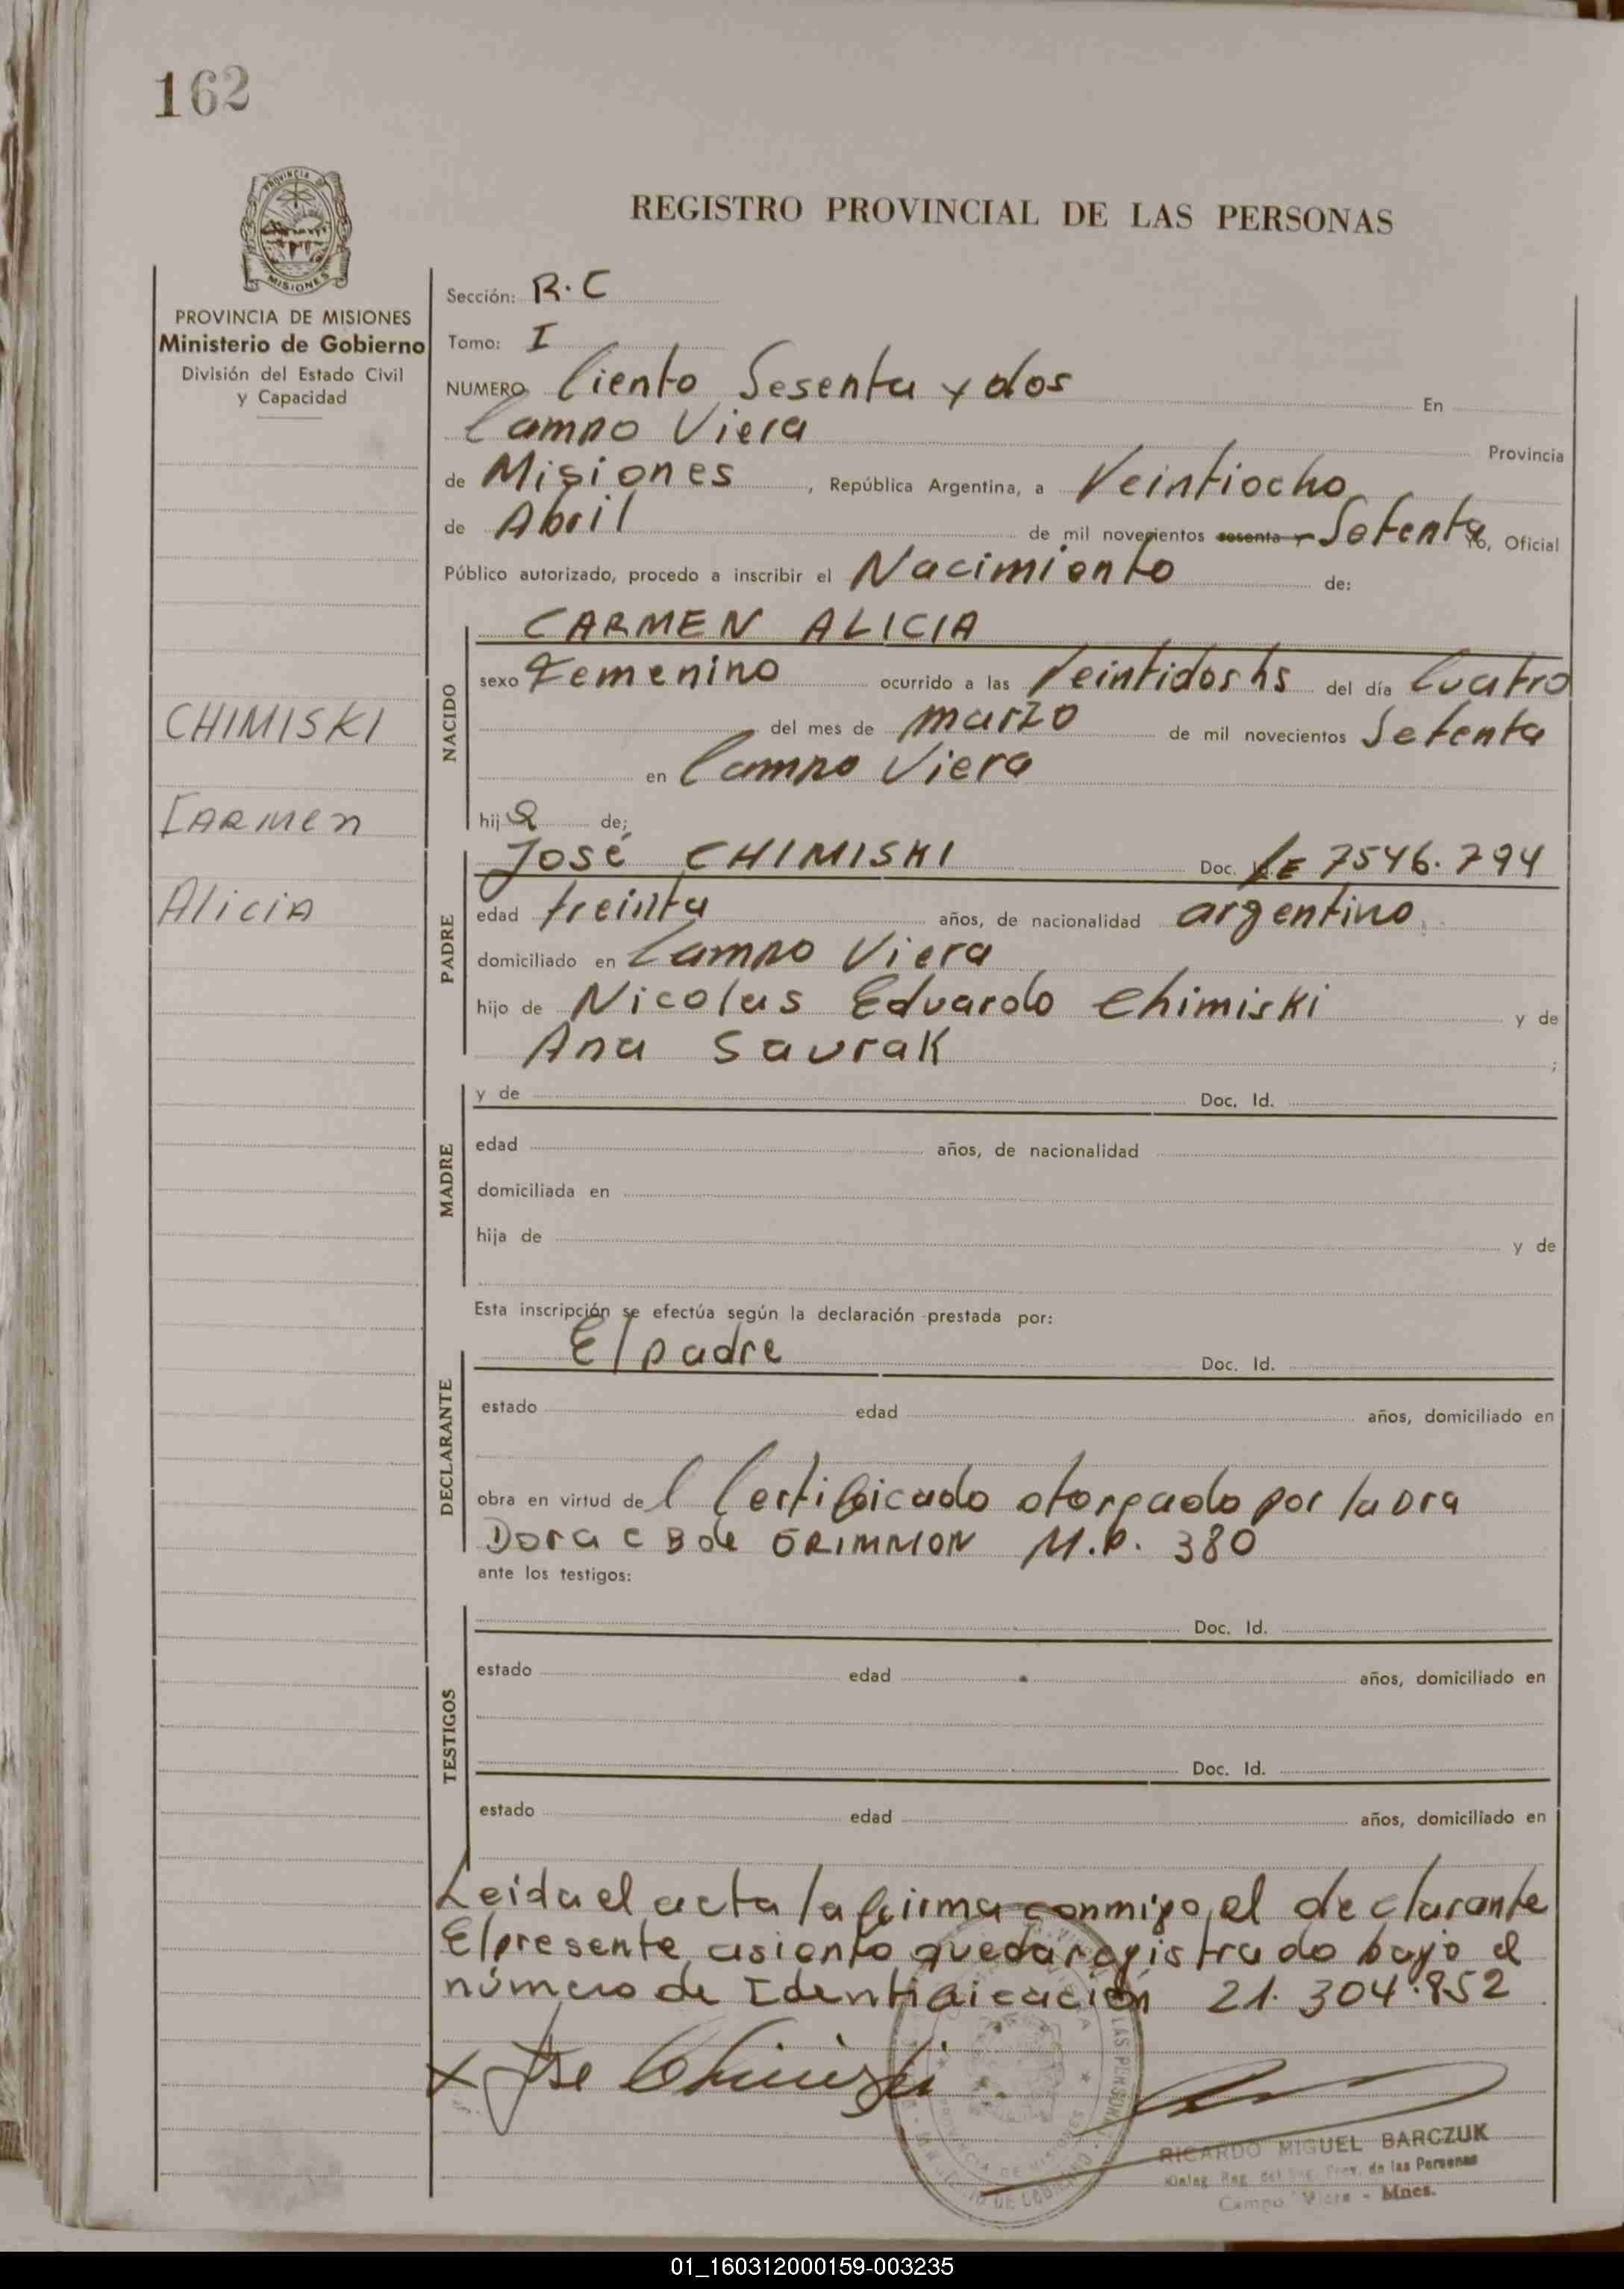 162
PROVINCIA DE
MISIONES
REGISTRO PROVINCIAL DE LAS PERSONAS
PROVINCIA DE MISIONES
Ministerio de Gobierno
División del Estado Civil
y Capacidad
CHIMISKI
CARMEn
AliciA
Sección: R.C
Tomo: I
NUMERO Ciento Sesenta y dos En
Campo Viera Provincia
de Misiones, República Argentina, a Veintiocho
de Abril de mil novecientos sesenta y Setenta Yo, Oficial
Público autorizado, procedo a inscribir el Nacimiento de:
NACIDO
CARMEN ALICIA
sexo Femenino ocurrido a las Veintidos hs del día Cuatro
del mes de marzo de mil novecientos Setenta
en Campo Viera
hija de;
PADRE
José CHIMISKI Doc. LE 7546.794
edad treinta años, de nacionalidad argentino
domiciliado en Campo Viera
hijo de Nicolas Eduardo Chimiski y de
Ana Saurak ;
MADRE
y de Doc. Id.
edad años, de nacionalidad
domiciliada en
hija de y de
Esta inscripción se efectúa según la declaración prestada por:
DECLARANTE
El padre Doc. Id.
estado edad años, domiciliado en
obra en virtud del Certificado otorgado por la Dra
Dora C B de M.P. 380
ante los testigos:
TESTIGOS
Doc. Id.
estado edad años, domiciliado en
Doc. Id.
estado edad años, domiciliado en
Leida el acta la firma conmigo, el declarante
El presente asiento queda registrado bajo el
número de Identificación 21.304.852
x Jose Chimiski
RICARDO MIGUEL BARCZUK
Deleg. Reg. del Prov. de las Personas
Campo Viera - Mnes.
01_160312000159-003235